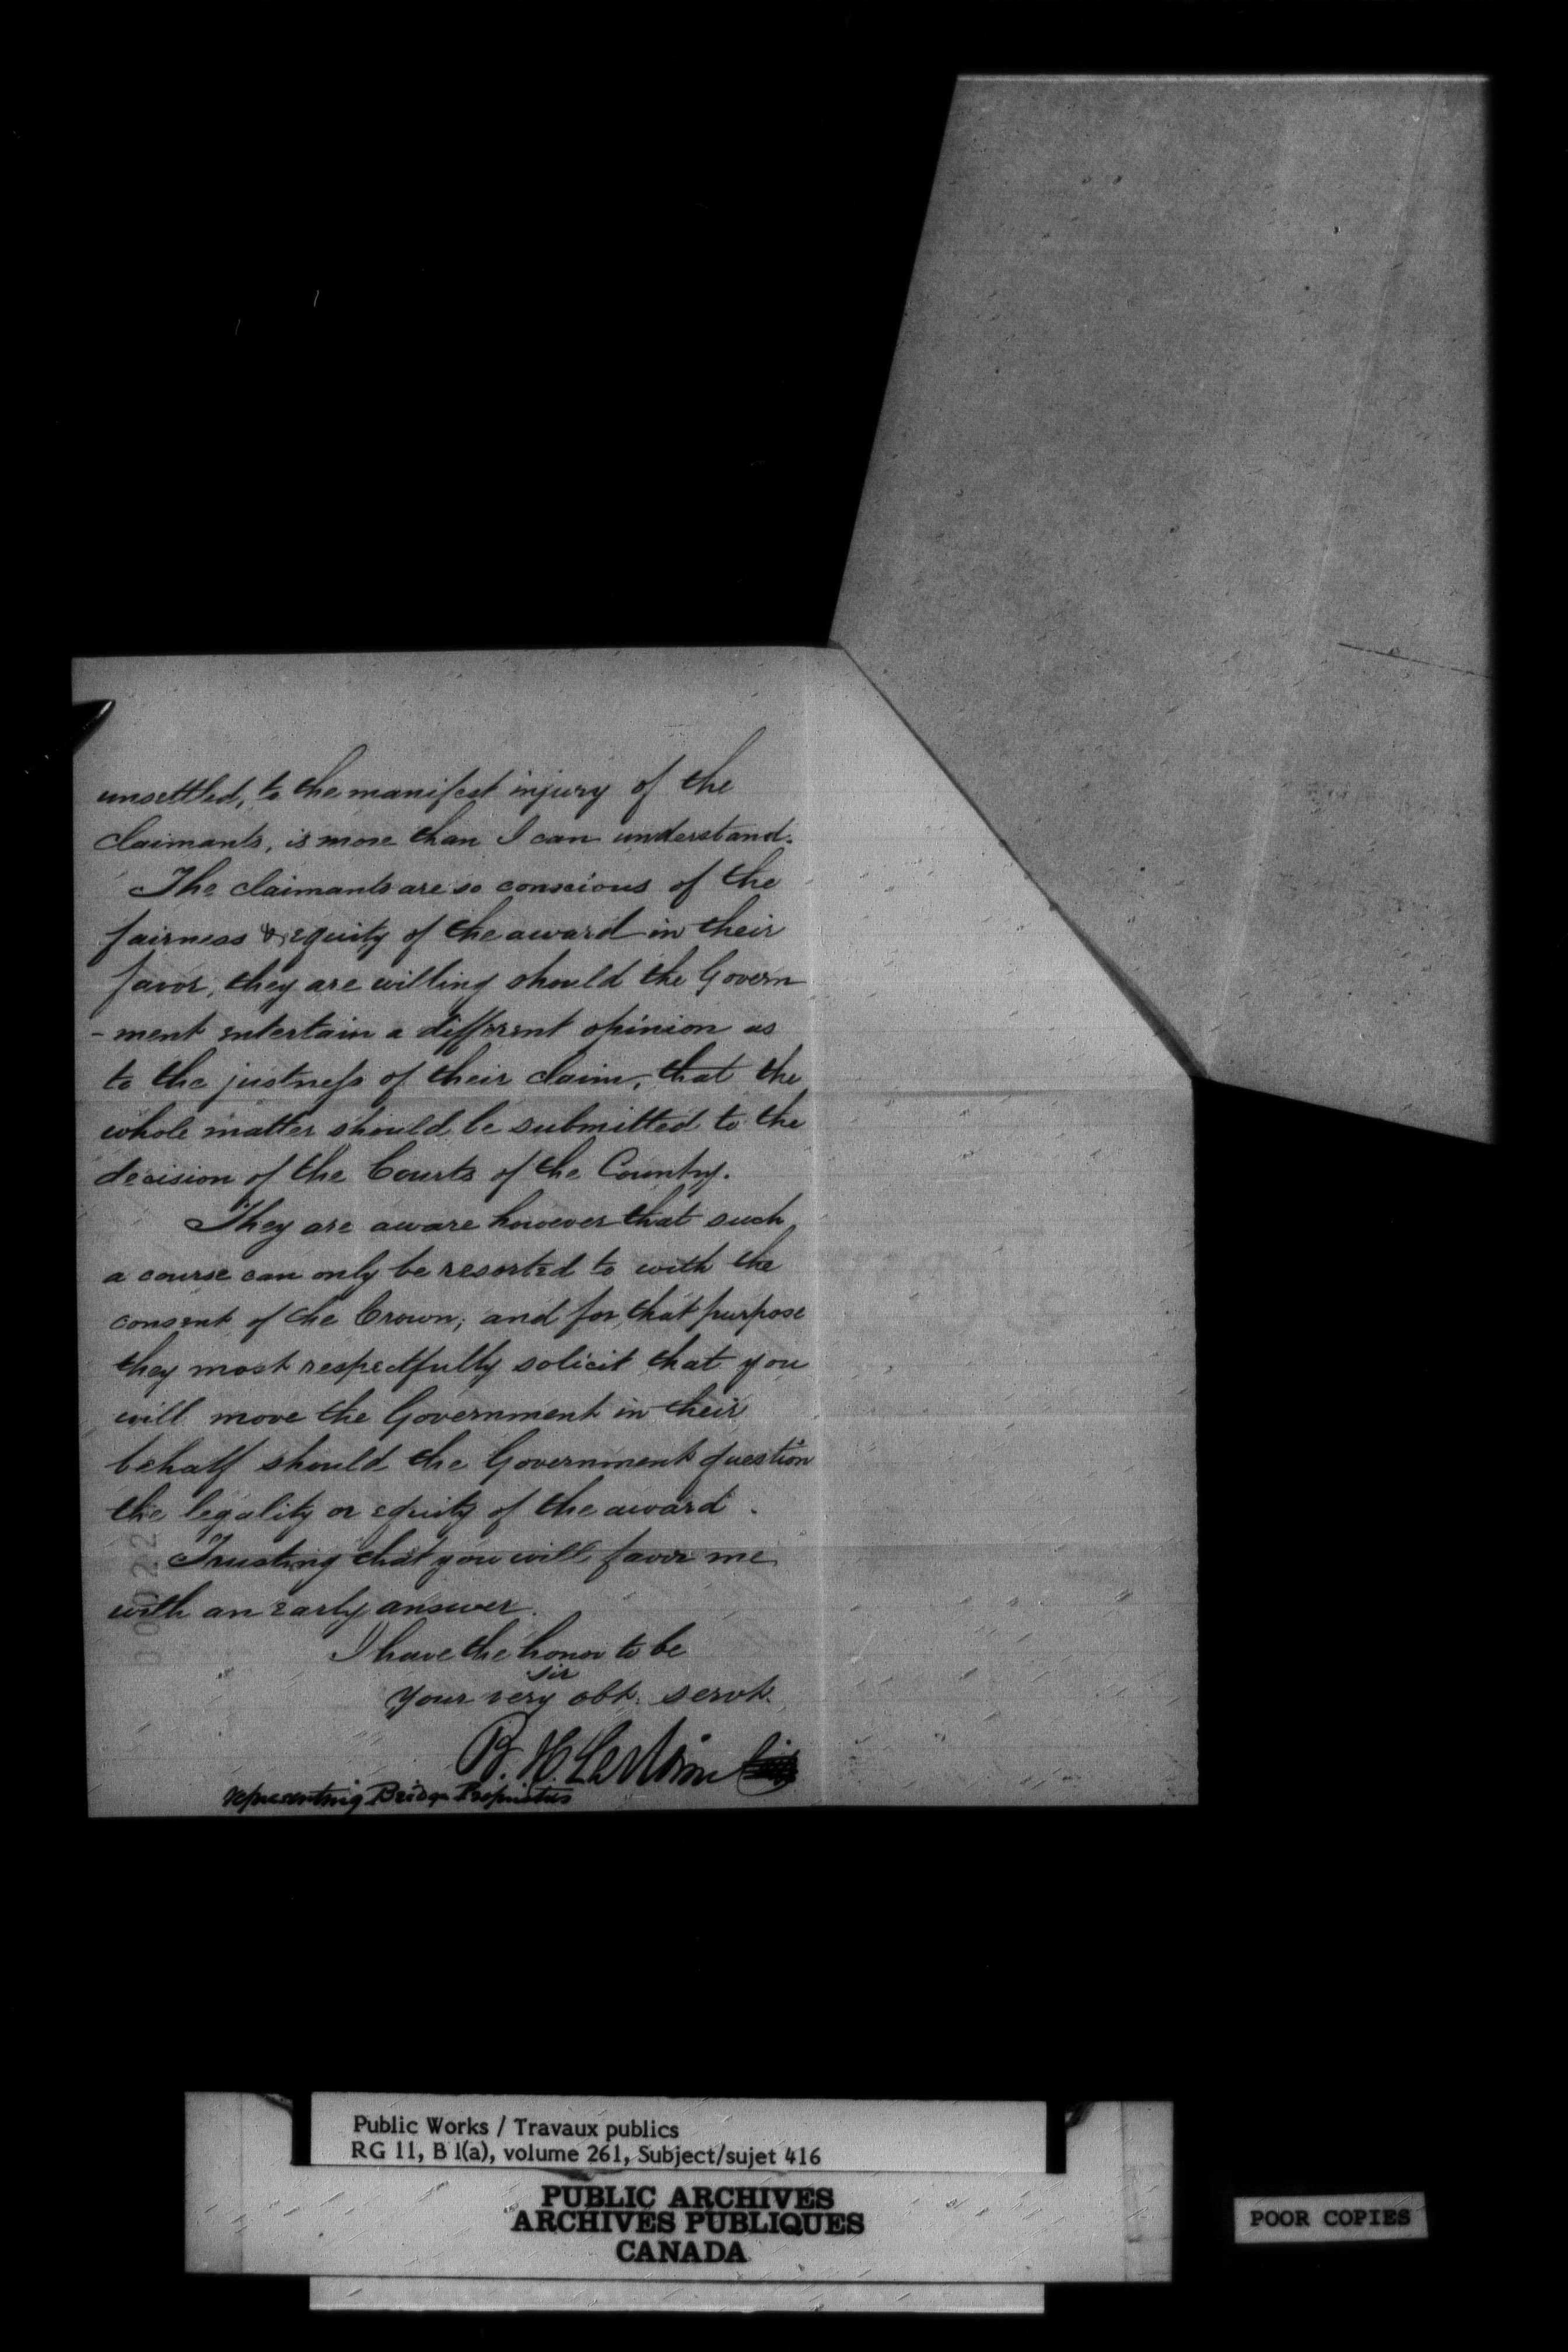 unsettled, to the manifest injury of the
claimants, is more than I can understand.
The claimants are so conscious of the
fairness & equity of the award in their
favor, they are willing should the Govern
- ment entertain a different opinion as
to the justness of their claim, that the
whole matter should be submitted to the
decision of the Courts of the Country.
They are aware however that such
a course can only be resorted to with the
consent of the Crown; and for that purpose
they most respectfully solicit that you
will move the Government in their
behalf should the Government question
the legality or equity of the award.
Trusting that you will favor me
with an early answer.
I have the honor to be
sir
Your very obt. servt.
B. H.
representing Bridge Proprietors
00022
Public Works / Travaux publics
RG 11, B 1(a), volume 261, Subject/sujet 416
PUBLIC ARCHIVES
ARCHIVES PUBLIQUES
CANADA
POOR COPIES